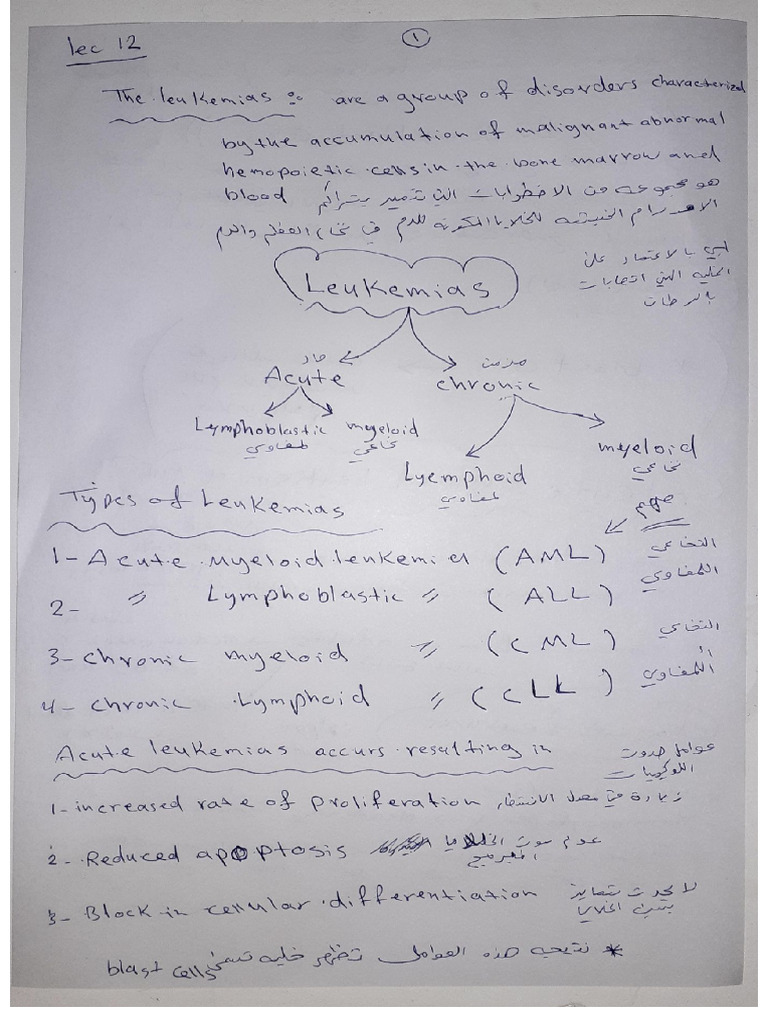 lec 12
1
The leukemias :- are a group of disorders characterized
by the accumulation of malignant abnormal
hemopoietic cells in the bone marrow and
blood هو مجموعه من الاضطرابات التي تتميز بتراكم
الاورام الخبيثه للخلايا المكونه للدم في نخاع العظم والدم
بالاعتماد على
الخليه التي
Leukemias
حاد
مزمن
Acute
chronic
Lymphoblastic myeloid
لمفاوي نخاعي
myeloid
نخاعي
Lyemphoid
لمفاوي
Types of Leukemias
مهم
1- Acute myeloid leukemia (AML) النخاعي
2- " Lymphoblastic " (ALL) اللمفاوي
3- chronic myeloid " (CML) النخاعي
4- chronic Lymphoid " (CLL) اللمفاوي
Acute leukemias accurs resulting in عوامل حدوث
اللوكيميات
1- increased rate of proliferation زيادة في معدل الانتشار
2- Reduced apoptosis عدم موت الخلايا
المبرمج
3- Block in cellular differentiation لا يحدث تمايز
بين الخلايا
* نتيجه هذه العوامل تظهر خليه تسمى
blast cells